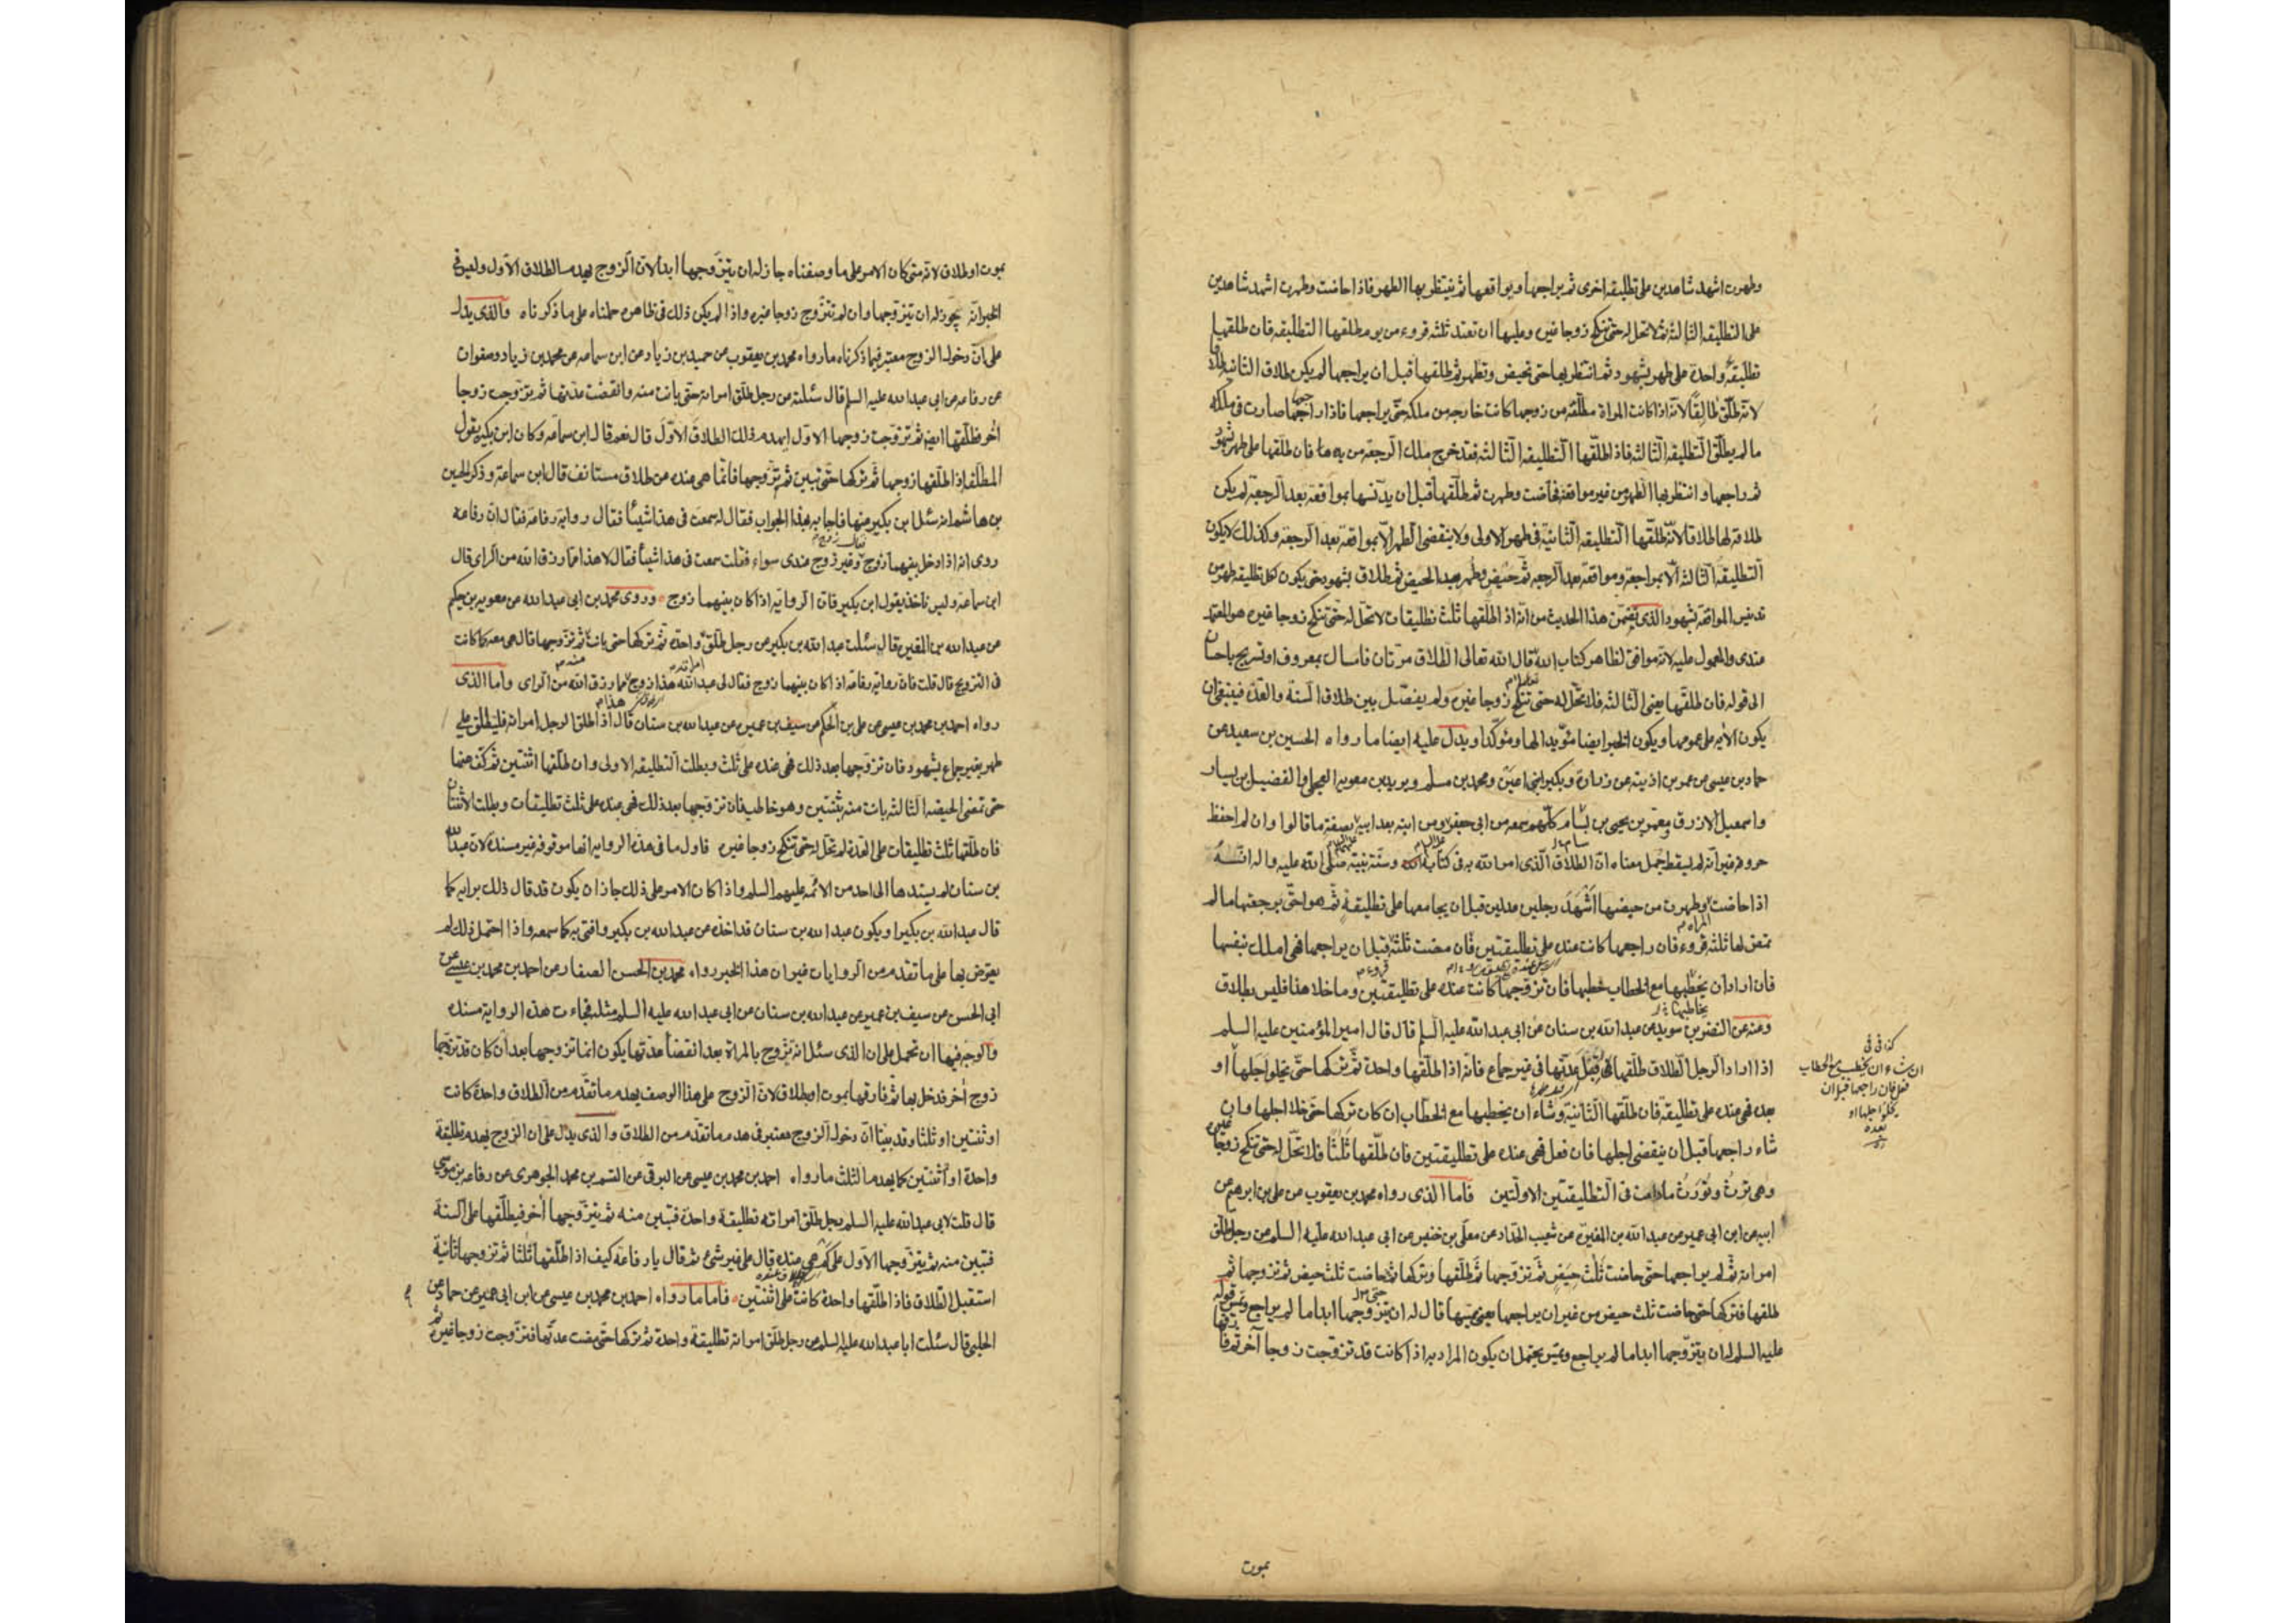 وطهرت اشهد شاهدين على تطليقه اخرى ثم يراجعها ويواقعها ثم ينتظر بها الطهر فاذا حاضت وطهرت اشهد شاهدين
على التطليقه الثالثه ثم لا تحل له حتى تنكح زوجا غيره وعليها ان تعتد ثلثه قروء من يوم طلقها التطليقه فان طلقها
تطليقة واحدة على طهر بشهود ثم انتظر بها حتى تحيض وتطهر ثم طلقها قبل ان يراجعها لم يكن طلاق الثانيه طلاقا
لانه طلق طالقا لانه اذا كانت المراة مطلقه من زوجها كانت خارجه من ملكه حتى يراجعها فاذا راجعها صارت فى ملكه
ما لم يطلق التطليقه الثالثه فاذا طلقها التطليقه الثالثه فقد خرج ملك الرجعه من يده فان طلقها على طهر بشهود
ثم راجعها وانتظر بها الطهر من غير مواقعه فحاضت وطهرت ثم طلقها قبل ان يدنسها بمواقعه بعد الرجعه لم يكن
طلاقه لها طلاقا لانه طلقها التطليقه الثانيه فى طهر الاولى ولا ينقضى الطهر الا بمواقعه بعد الرجعه وكذلك لا يكون
التطليقه الثالثه الا بمراجعه ومواقعه بعد الرجعه ثم حيض وطهر بعد الحيض ثم طلاق بشهود حتى يكون لكل تطليقه طهر من
تدنيس المواقعه بشهود الذى تضمن هذا الحديث من انه اذا طلقها ثلث تطليقات لا تحل له حتى تنكح زوجا غيره هو المعتمد
عندى والمعمول عليه لانه موافق لظاهر كتاب الله قال الله تعالى الطلاق مرتان فامساك بمعروف او تسريح باحسان
الى قوله فان طلقها يعنى الثالثه فلا تحل له حتى تنكح زوجا غيره ولم يفصل بين طلاق السنة والعدة فينبغى ان
يكون الآيه على عمومها ويكون الخبر ايضا مؤيدا لها ومؤكدا ويدل عليه ايضا ما رواه الحسين بن سعيد عن
حماد بن عيسى عن عمر بن اذينه عن زرارة وبكير ابنى اعين ومحمد بن مسلم وبريد بن معويه العجلى والفضيل بن يسار
واسمعيل الازرق ومعمر بن يحيى بن بسام كلهم سمعه من ابى جعفر ومن ابنه بعد ابيه بصفة ما قالوا وان لم احفظ
حروفه غير انه لم يسقط جمل معناه ان الطلاق الذى امر الله به فى كتابه وسنة نبيه صلى الله عليه واله انه
اذا حاضت وطهرت من حيضها اشهد رجلين عدلين قبل ان يجامعها على تطليقة ثم هو احق برجعتها ما لم
تمض لها ثلثه قروء فان راجعها كانت عنده على تطليقتين فان مضت ثلثة قبل ان يراجعها فهى املك بنفسها
فان اراد ان يخطبها مع الخطاب خطبها فان تزوجها كانت عنده على تطليقتين وما خلا هذا فليس بطلاق
وعنه عن النضر بن سويد عن عبد الله بن سنان عن ابى عبد الله عليه السلم قال قال امير المؤمنين عليه السلم
اذا اراد الرجل الطلاق طلقها فى قبل عدتها فى غير جماع فانه اذا طلقها واحدة ثم تركها حتى يخلو اجلها او
بعده فهى عنده على تطليقة فان طلقها الثانية وشاء ان يخطبها مع الخطاب ان كان تركها حتى خلا اجلها وان
شاء راجعها قبل ان ينقضى اجلها فان فعل فهى عنده على تطليقتين فان طلقها ثلثا فلا تحل له حتى تنكح زوجا غيره
وهى ترث وتورث ما دامت فى التطليقتين الاولتين فاما الذى رواه محمد بن يعقوب عن على بن ابرهيم عن
ابيه عن ابن ابى عمير عن عبد الله بن المغيرة عن شعيب الحداد عن معلى بن خنيس عن ابى عبد الله عليه السلم عن رجل طلق
امراته ثم لم يراجعها حتى حاضت ثلث حيض ثم تزوجها ثم طلقها وتركها حتى حاضت ثلث حيض ثم تزوجها ثم
طلقها فتركها حتى حاضت ثلث حيض من غير ان يراجعها يعنى يمسها قال له ان يتزوجها ابدا ما لم يراجع ويمس قوله
عليه السلم له ان يتزوجها ابدا ما لم يراجع ويمس يحتمل ان يكون المراد به اذا كانت قد تزوجت زوجا آخر ثم فارقها
كذا فى فى
ان شاء ان يخطب مع الخطاب
فعل فان راجعها قبل ان
يخلو اجلها او
بعده
بموت
بموت او طلاق لانه متى كان الامر على ما وصفناه جاز له ان يتزوجها ابدا لان الزوج يهدم الطلاق الاول وليس فى
الخبر انه يجوز له ان يتزوجها وان لم تتزوج زوجا غيره واذا لم يكن ذلك فى ظاهره حملناه على ما ذكرناه والذى يدل
على ان دخول الزوج معتبر فيما ذكرناه ما رواه محمد بن يعقوب عن حميد بن زياد عن ابن سماعه عن محمد بن زياد وصفوان
عن رفاعه عن ابى عبد الله عليه السلم قال سئلته عن رجل طلق امراته حتى بانت منه وانقضت عدتها ثم تزوجت زوجا
آخر فطلقها ايضا ثم تزوجت زوجها الاول ايهدم ذلك الطلاق الاول قال نعم قال ابن سماعه وكان ابن بكير يقول
المطلقه اذا طلقها زوجها ثم تركها حتى تبين ثم تزوجها فانما هى عنده على طلاق مستانف قال ابن سماعة وذكر الحسين
بن هاشم انه سئل ابن بكير عنها فاجابه بهذا الجواب فقال له سمعت فى هذا شيئا فقال رواية رفاعه فقال ان رفاعه
روى انه اذا دخل بينهما زوج وغير زوج عندى سواء فقلت سمعت فى هذا شيئا فقال لا هذا مما رزق الله من الراى قال
ابن سماعه وليس ناخذ بقول ابن بكير فان الرواية اذا كان بينهما زوج وروى محمد بن ابى عبد الله عن معويه بن حكيم
عن عبد الله بن المغيره قال سئلت عبد الله بن بكير عن رجل طلق واحدة ثم تركها حتى بانت ثم تزوجها قال هى معه كما كانت
فى التزويج قال قلت فان رواية رفاعه اذا كان بينهما زوج فقال لى عبد الله هذا زوج مما رزق الله من الراى واما الذى
رواه احمد بن محمد بن عيسى عن على بن الحكم عن سيف بن عميره عن عبد الله بن سنان قال اذا طلق الرجل امراته فليطلق على
طهر بغير جماع بشهود فان تزوجها بعد ذلك فهى عنده على ثلث وبطلت التطليقه الاولى وان طلقها اثنتين ثم كف عنها
حتى تمضى الحيضه الثالثه بانت منه بثنتين وهو خاطب فان تزوجها بعد ذلك فهى عنده على ثلث تطليقات وبطلت الاثنتان
فان طلقها ثلث تطليقات على العدة لم تحل له حتى تنكح زوجا غيره فاول ما فى هذه الروايه انها موقوفه غير مسنده لان عبد الله
بن سنان لم يسندها الى احد من الائمه عليهم السلم واذا كان الامر على ذلك جاز ان يكون قد قال ذلك برايه كما
قال عبد الله بن بكير او يكون عبد الله بن سنان قد اخذه عن عبد الله بن بكير وافتى به كما سمعه واذا احتمل ذلك لم
يعترض بها على ما تقدم من الروايات غير ان هذا الخبر رواه محمد بن الحسن الصفار عن احمد بن محمد بن عيسى عن
ابى الحسن عن سيف بن عميره عن عبد الله بن سنان عن ابى عبد الله عليه السلم مثله فجاءت هذه الرواية مسنده
والوجه فيها ان تحمل على ان الذى سئل انه تزوج بالمراة بعد انقضاء عدتها يكون انما تزوجها بعد ان كان قد تزوجها
زوج آخر فدخل بها ثم فارقها بموت او طلاق لان الزوج على هذا الوصف يهدم ما تقدم من الطلاق واحدة كانت
او ثنتين او ثلثا وقد بينا ان دخول الزوج معتبر فى هدم ما تقدم من الطلاق والذى يدل على ان الزوج يهدم تطليقة
واحدة او ثنتين كما يهدم الثلث ما رواه احمد بن محمد بن عيسى عن البرقى عن القسم بن محمد الجوهرى عن رفاعه بن موسى
قال قلت لابى عبد الله عليه السلم رجل طلق امراته تطليقة واحدة فتبين منه ثم يتزوجها آخر فيطلقها على السنة
فتبين منه ثم يتزوجها الاول على كم هى عنده قال على غير شىء ثم قال يا رفاعه كيف اذا طلقها ثلثا ثم تزوجها ثانية
استقبل الطلاق فاذا طلقها واحدة كانت على اثنتين فاما ما رواه احمد بن محمد بن عيسى عن ابن ابى عمير عن حماد عن
الحلبى قال سئلت ابا عبد الله عليه السلم عن رجل طلق امراته تطليقة واحدة ثم تركها حتى مضت عدتها فتزوجت زوجا غيره ثم